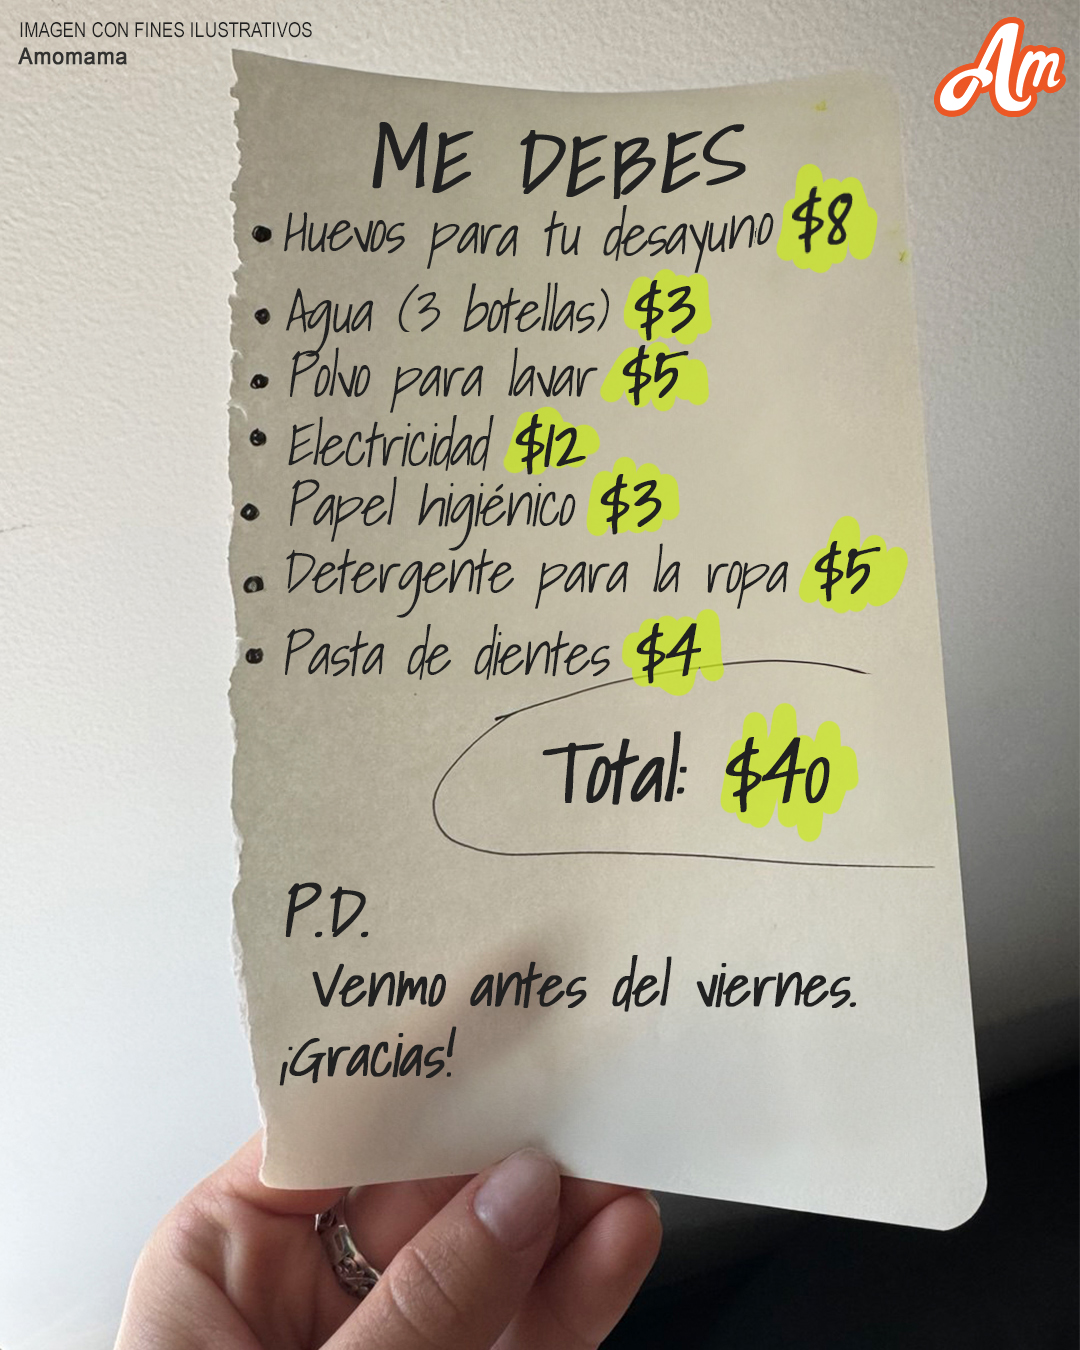 IMAGEN CON FINES ILUSTRATIVOS
Amomama
Am
ME DEBES
• Huevos para tu desayuno $8
• Agua (3 botellas) $3
• Polvo para lavar $5
• Electricidad $12
• Papel higiénico $3
• Detergente para la ropa $5
• Pasta de dientes $4
Total: $40
P.D.
Venmo antes del viernes.
¡Gracias!